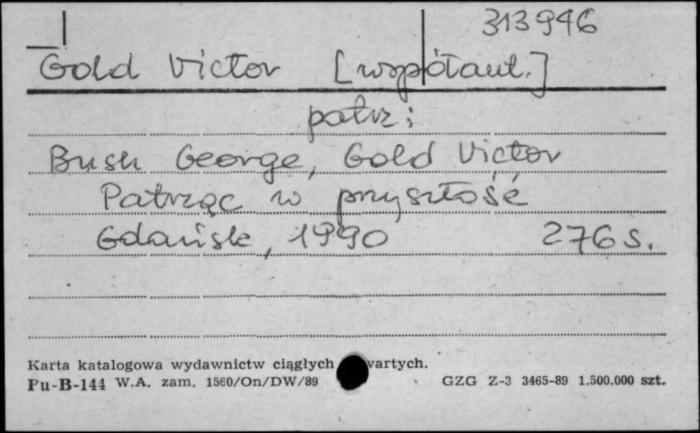 313946
Gold Victor [współaut.]
patrz:
Bush George, Gold Victor
Patrząc w przyszłość
Gdańsk, 1990 276 s.
Karta katalogowa wydawnictw ciągłych wartych.
Pu-B-144 W.A. zam. 1560/On/DW/89 GZG Z-3 3465-89 1.500.000 szt.